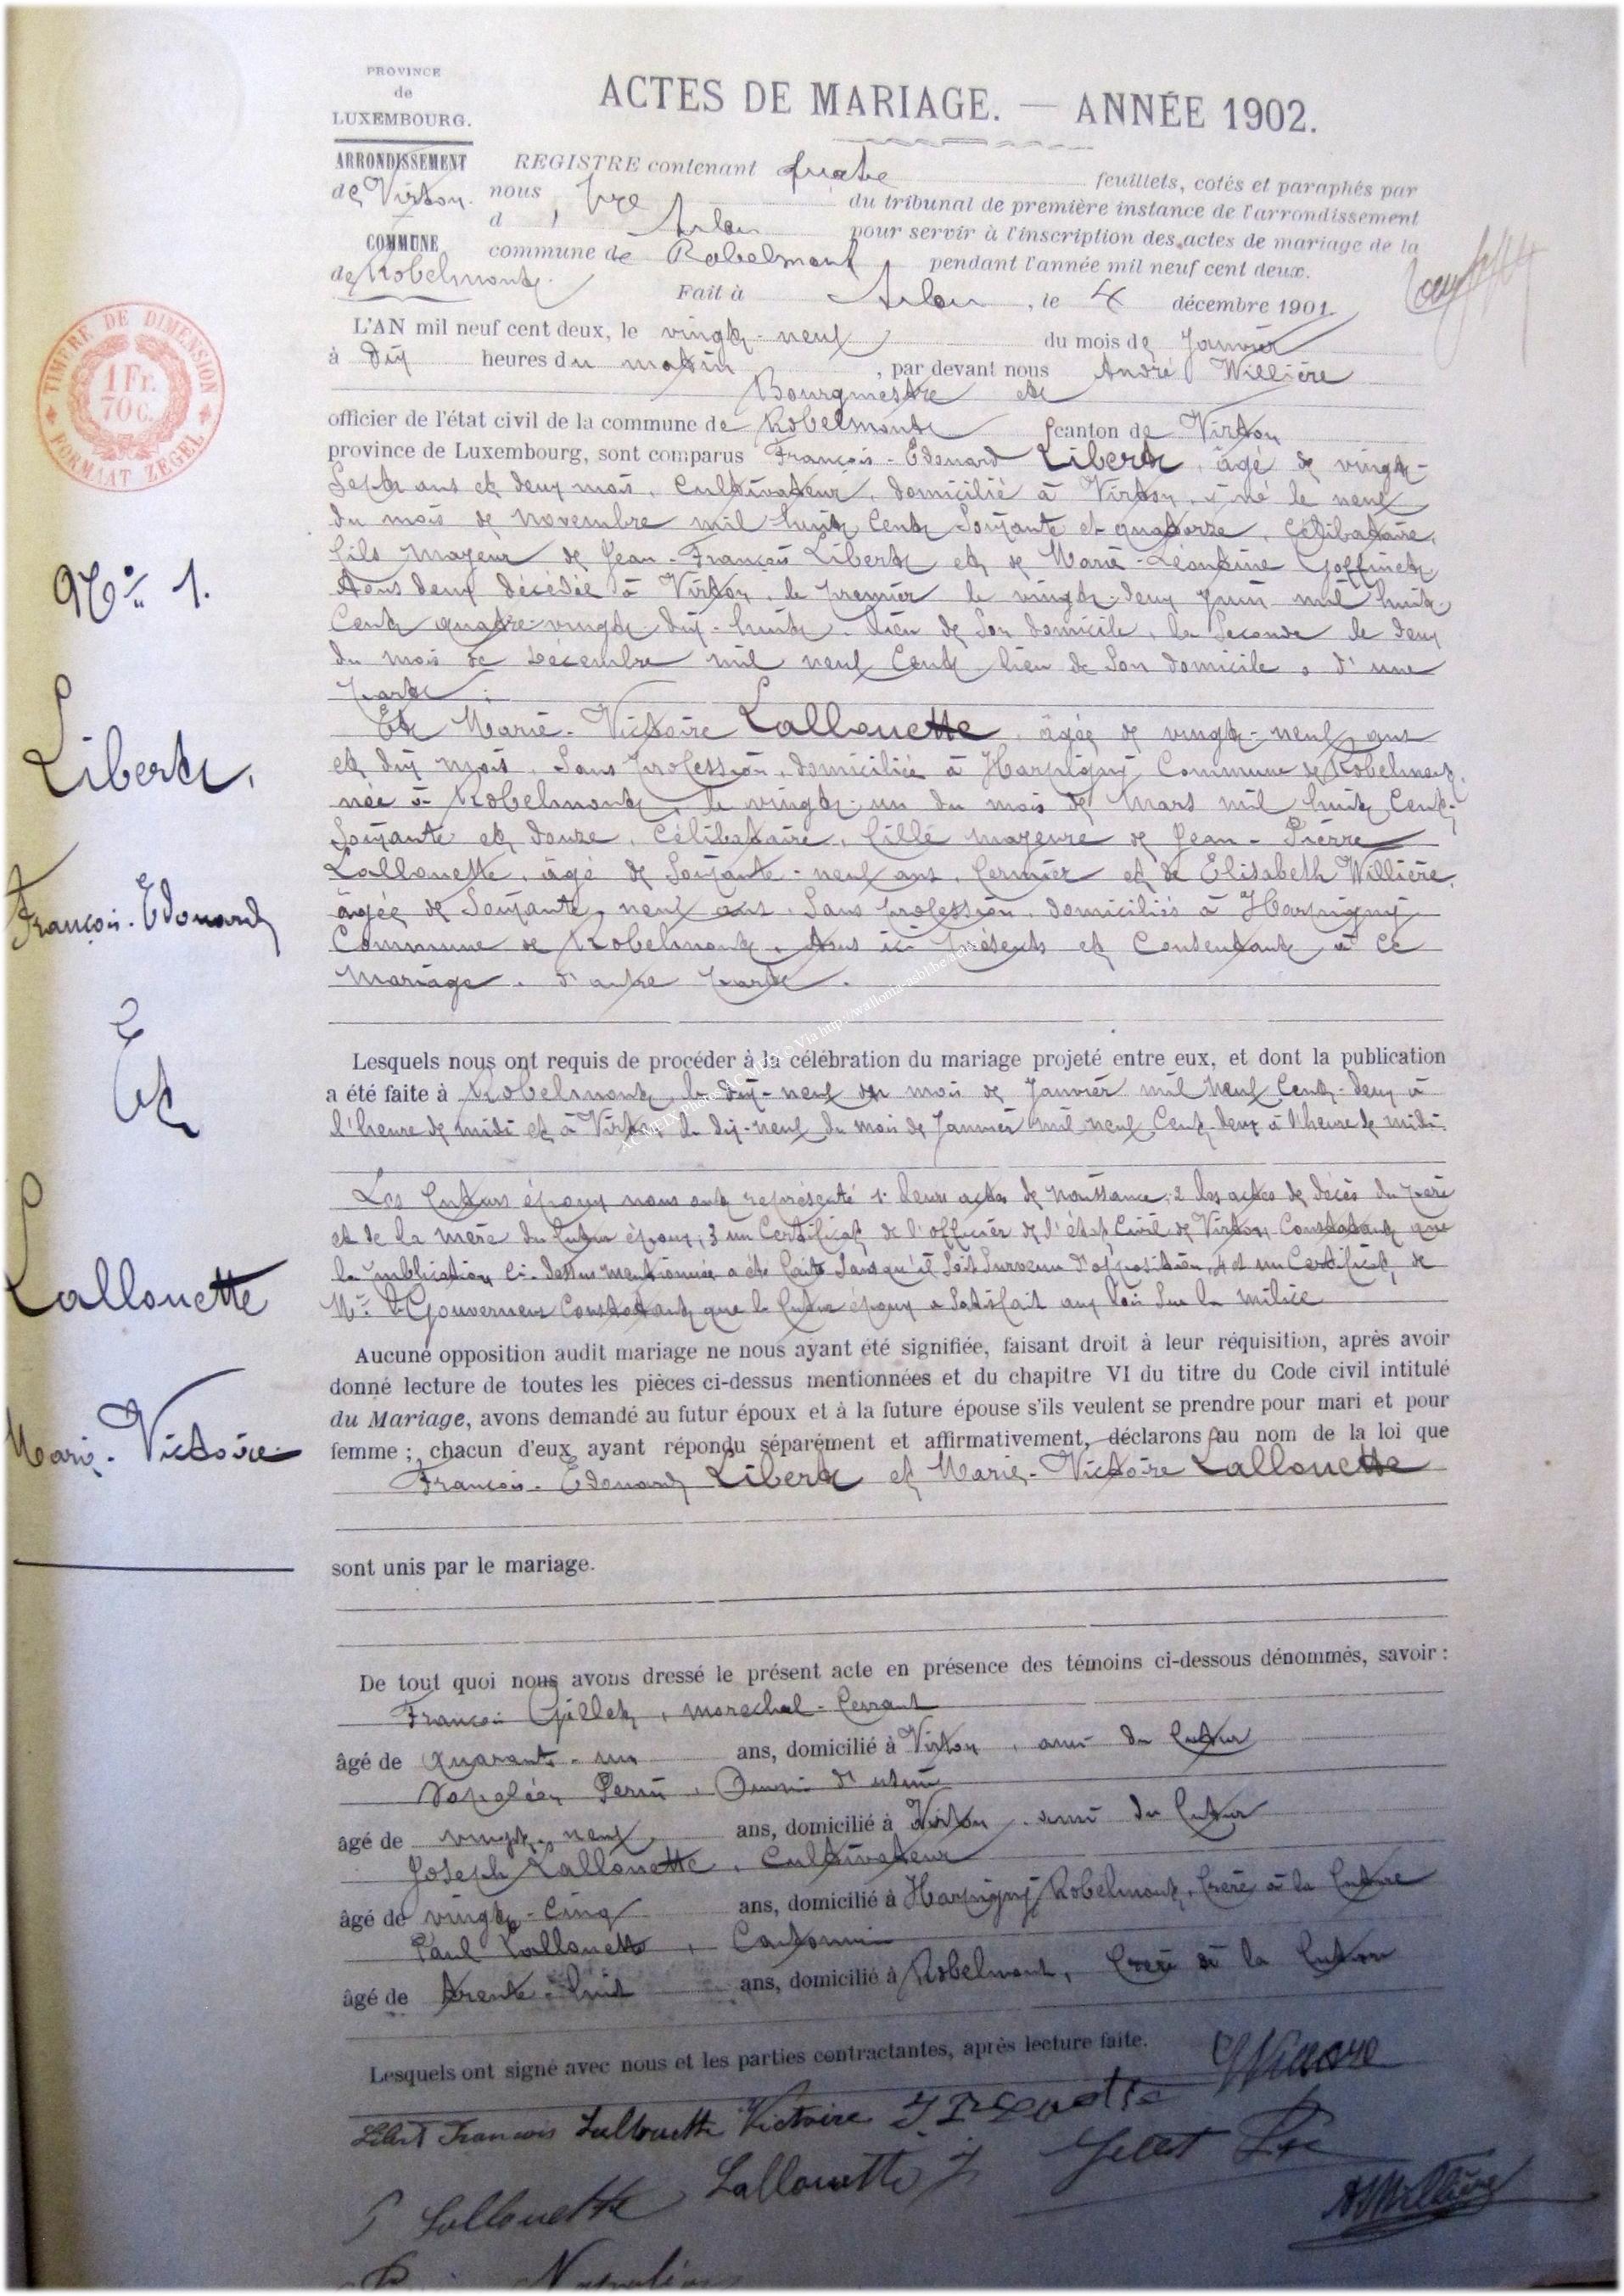 PROVINCE
de
LUXEMBOURG.
ARRONDISSEMENT
de Virton.
COMMUNE
de Robelmont.
ACTES DE MARIAGE. — ANNÉE 1902.
REGISTRE contenant quatre feuillets, cotés et paraphés par
nous du tribunal de première instance de l'arrondissement
d Arlon pour servir à l'inscription des actes de mariage de la
commune de Robelmont pendant l'année mil neuf cent deux.
Fait à Arlon, le 4 décembre 1901.
TIMBRE DE DIMENSION
1 Fr.
70 C.
FORMAAT ZEGEL
L'AN mil neuf cent deux, le vingt-neuf du mois de Janvier
à dix heures du matin, par devant nous André Willière
Bourgmestre et
officier de l'état civil de la commune de Robelmont canton de Virton
province de Luxembourg, sont comparus François-Edouard Libert, âgé de vingt-
sept ans et deux mois, cultivateur, domicilié à Virton, y né le neuf
du mois de novembre mil huit cent soixante et quatorze, célibataire,
fils majeur de Jean-François Libert et de Marie-Léontine Goffinet
tous deux décédés à Virton, le premier le vingt-deux juin mil huit
cent quatre-vingt dix-huit, lieu de son domicile, la seconde le deux
du mois de Décembre mil neuf cent lieu de son domicile, d'une
part;
Et Marie-Victoire Lallouette, âgée de vingt-neuf ans
et dix mois, sans profession, domiciliée à Harpigny commune de Robelmont,
née à Robelmont, le vingt-un du mois de Mars mil huit cent
soixante et douze, célibataire, fille majeure de Jean-Pierre
Lallouette, âgé de soixante-neuf ans, fermier et de Elisabeth Willière,
âgée de soixante-neuf ans, sans profession, domiciliés à Harpigny
Commune de Robelmont, tous ici présents et consentant à ce
mariage, d'autre part.
Lesquels nous ont requis de procéder à la célébration du mariage projeté entre eux, et dont la publication
a été faite à Robelmont, le dix-neuf du mois de Janvier mil neuf cent-deux à
l'heure de midi et à Virton le dix-neuf du mois de Janvier mil neuf cent deux à l'heure de midi.
Les futurs époux nous ont représenté 1° leurs actes de naissance, 2 les actes de décès du père
et de la mère du futur époux, 3 un certificat de l'officier de l'état civil de Virton constatant que
la publication ci-dessus mentionnée a été faite sans qu'il soit survenu d'opposition, 4 et un certificat de
Mr le Gouverneur constatant que le futur époux a satisfait aux lois sur la milice
Aucune opposition audit mariage ne nous ayant été signifiée, faisant droit à leur réquisition, après avoir
donné lecture de toutes les pièces ci-dessus mentionnées et du chapitre VI du titre du Code civil intitulé
du Mariage, avons demandé au futur époux et à la future épouse s'ils veulent se prendre pour mari et pour
femme ; chacun d'eux ayant répondu séparément et affirmativement, déclarons au nom de la loi que
François-Edouard Libert et Marie-Victoire Lallouette
sont unis par le mariage.
De tout quoi nous avons dressé le présent acte en présence des témoins ci-dessous dénommés, savoir :
François Gillet, marechal-ferrant
âgé de quarante-un ans, domicilié à Virton, ami du futur
Napoléon Perin, Ouvrier d'usine
âgé de vingt-neuf ans, domicilié à Virton, ami du futur
Joseph Lallouette, cultivateur
âgé de vingt-cinq ans, domicilié à Harpigny Robelmont, frère à la future
Paul Lallouette, Cantonnier
âgé de trente-huit ans, domicilié à Robelmont, frère à la future
Lesquels ont signé avec nous et les parties contractantes, après lecture faite.
Libert François Lallouette Victoire
P Lallouette Lallouette J
AWillière
Napoléon
No 1.
Libert,
François-Edouard
Et
Lallouette
Marie-Victoire